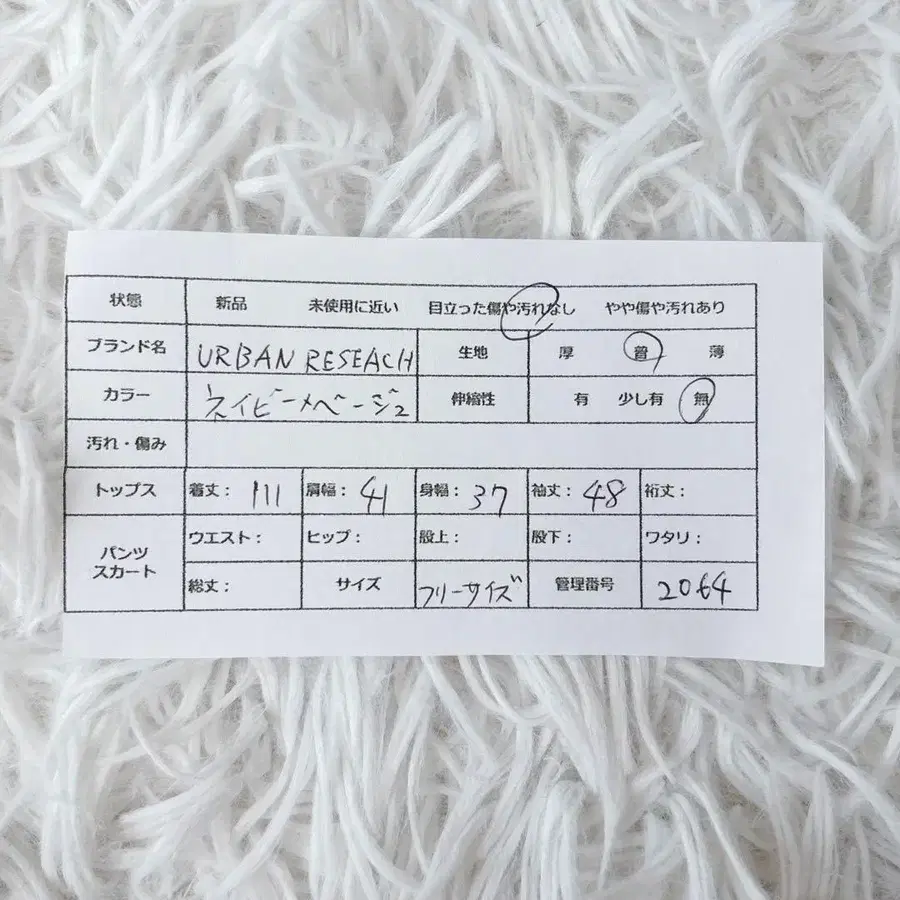 状態 新品 未使用に近い 目立った傷や汚れなし やや傷や汚れあり
ブランド名 URBAN RESEACH 生地 厚 普 薄
カラー ネイビー×ベージュ 伸縮性 有 少し有 無
汚れ・傷み
トップス 着丈： 111 肩幅： 41 身幅： 37 袖丈： 48 裄丈：
パンツ スカート ウエスト： ヒップ： 股上： 股下： ワタリ：
総丈： サイズ フリーサイズ 管理番号 2064